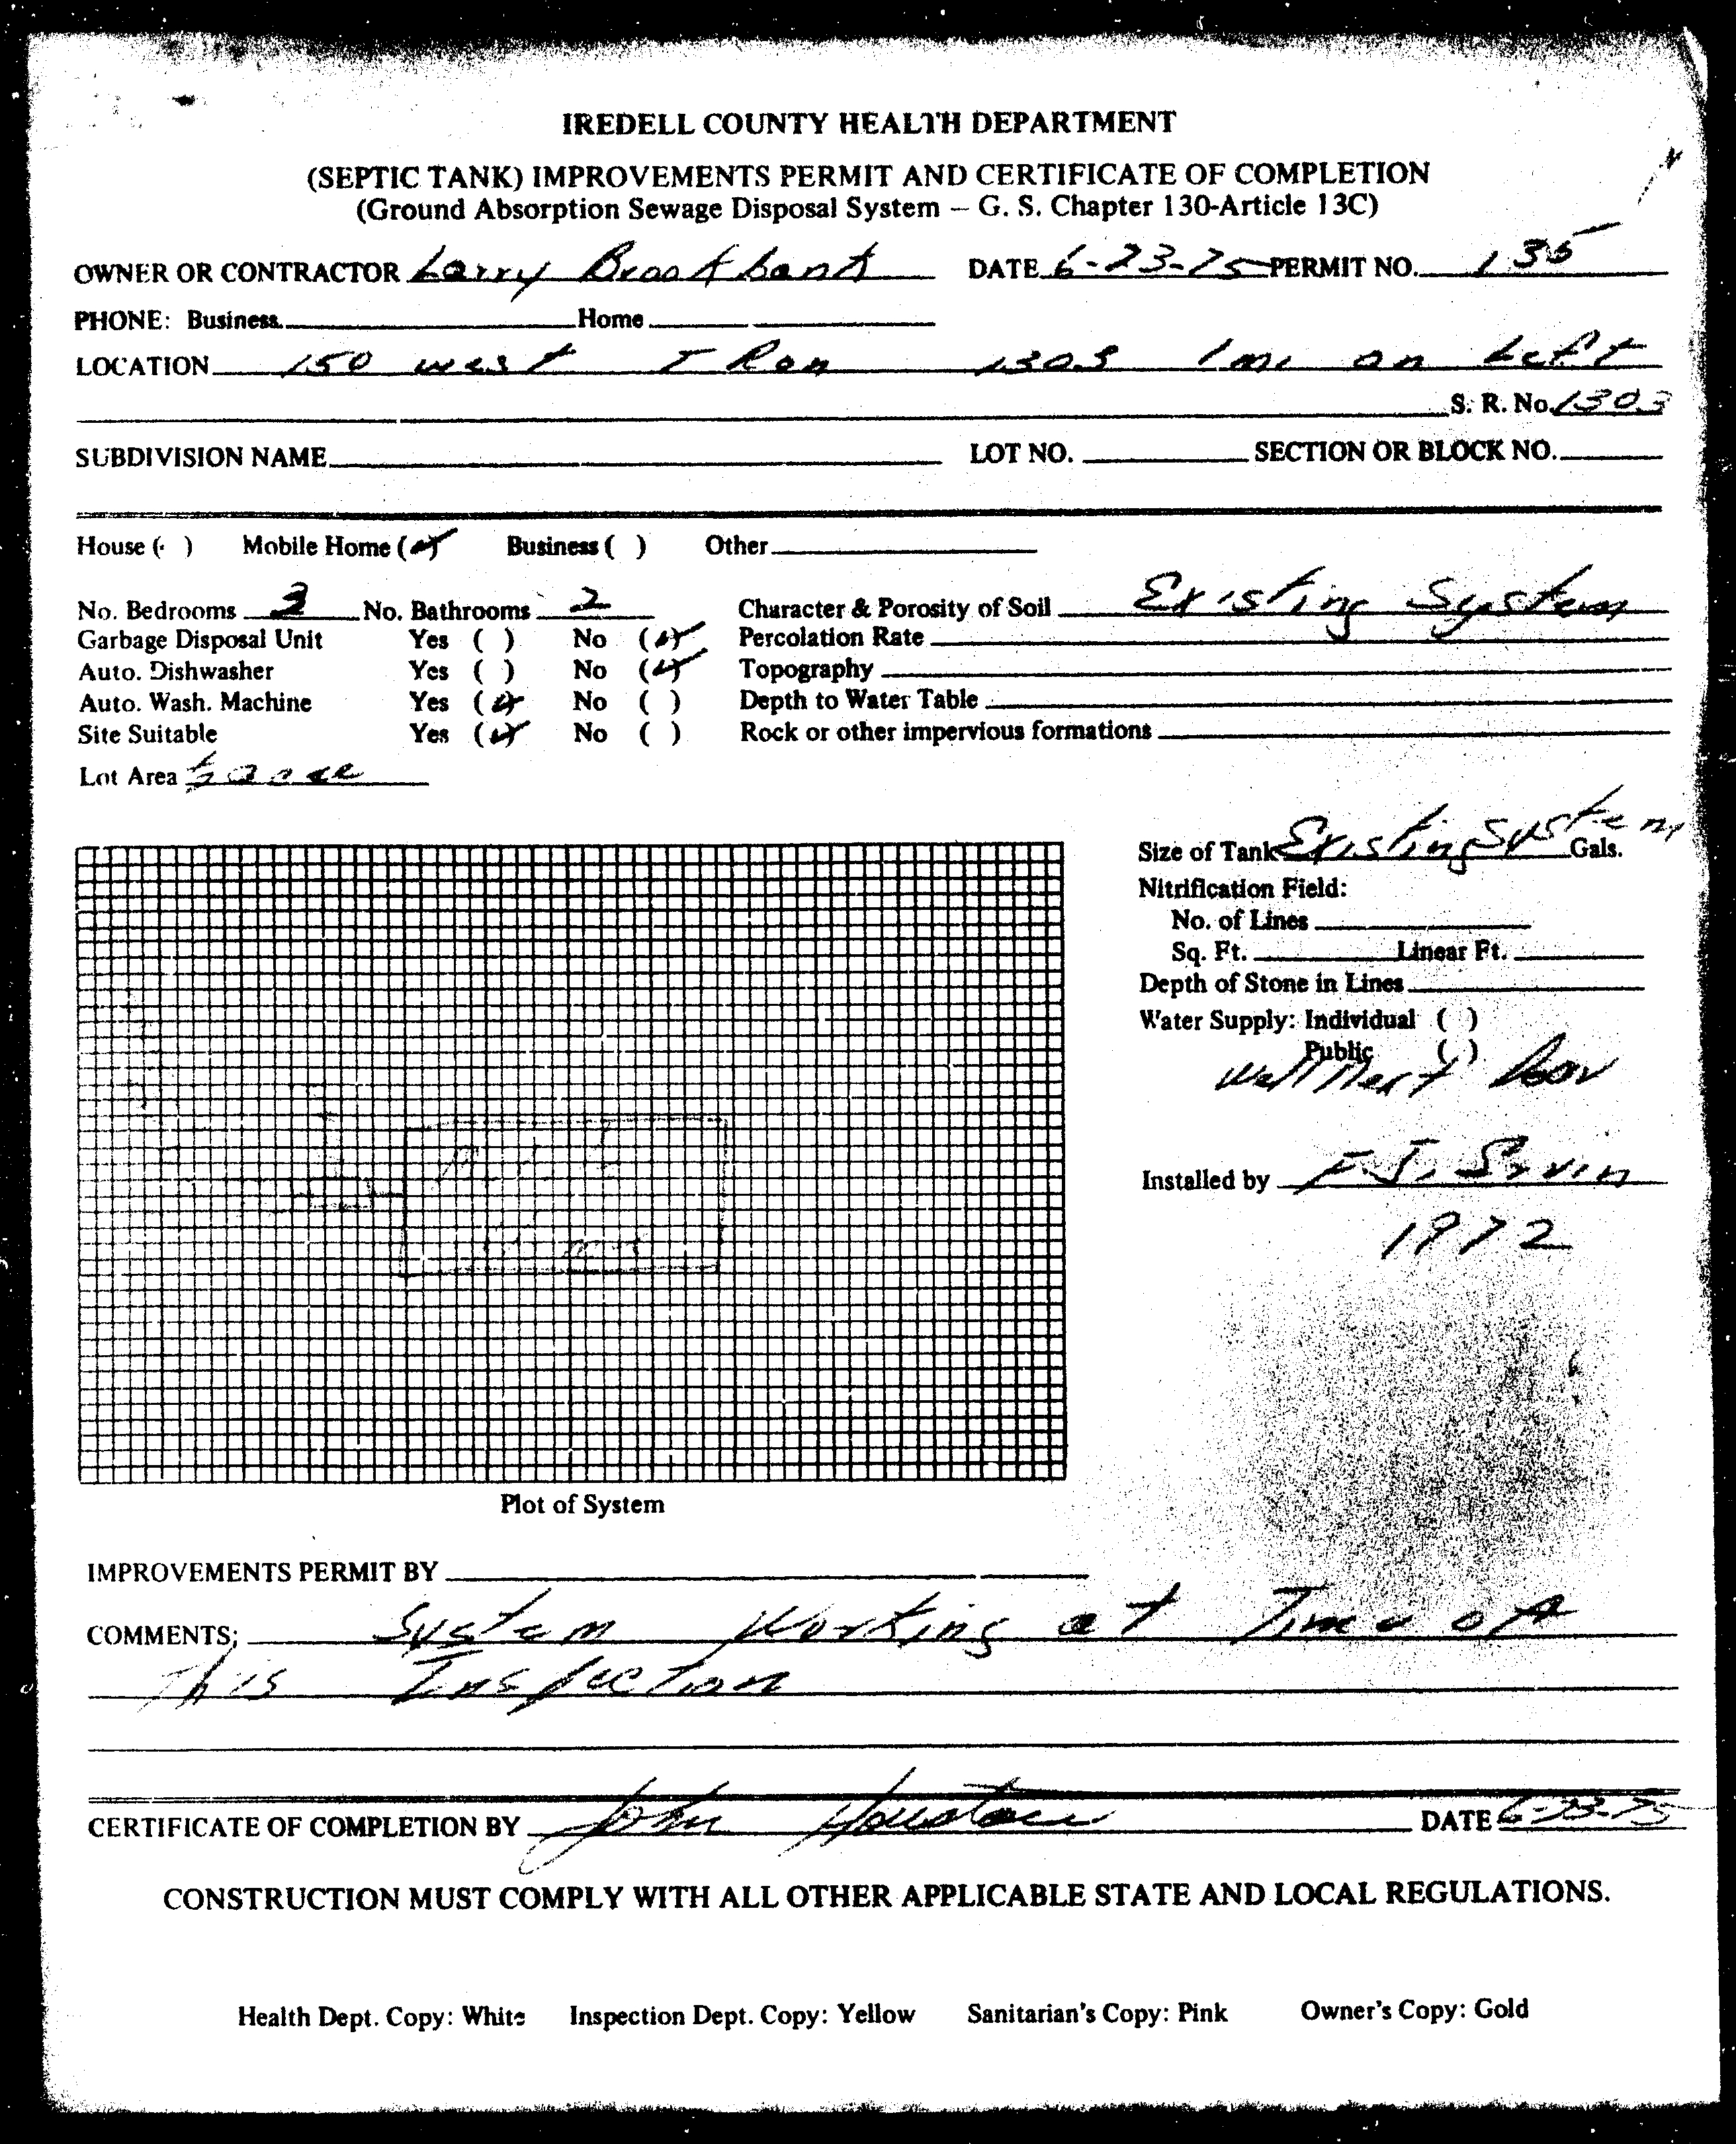 IREDELL COUNTY HEALTH DEPARTMENT
(SEPTIC TANK) IMPROVEMENTS PERMIT AND CERTIFICATE OF COMPLETION
(Ground Absorption Sewage Disposal System – G. S. Chapter 130-Article 13C)
OWNER OR CONTRACTOR Larry Brookbank DATE 6-23-75 PERMIT NO. 135
PHONE: Business Home
LOCATION 150 west T Ron 1303 1 mi on Left
S. R. No. 1303
SUBDIVISION NAME LOT NO. SECTION OR BLOCK NO.
House ( ) Mobile Home (✓) Business ( ) Other
No. Bedrooms 3 No. Bathrooms 2 Character & Porosity of Soil Existing System
Garbage Disposal Unit Yes ( ) No (✓) Percolation Rate
Auto. Dishwasher Yes ( ) No (✓) Topography
Auto. Wash. Machine Yes (✓) No ( ) Depth to Water Table
Site Suitable Yes (✓) No ( ) Rock or other impervious formations
Lot Area
Size of Tank Existing System Gals.
Nitrification Field:
No. of Lines
Sq. Ft. Linear Ft.
Depth of Stone in Lines
Water Supply: Individual ( )
Public ( )
Well Next Door
Installed by F.J. Ervin
1972
Plot of System
IMPROVEMENTS PERMIT BY
COMMENTS; System Working at Time of
This Inspection
CERTIFICATE OF COMPLETION BY John Houston DATE 6-23-75
CONSTRUCTION MUST COMPLY WITH ALL OTHER APPLICABLE STATE AND LOCAL REGULATIONS.
Health Dept. Copy: White Inspection Dept. Copy: Yellow Sanitarian's Copy: Pink Owner's Copy: Gold